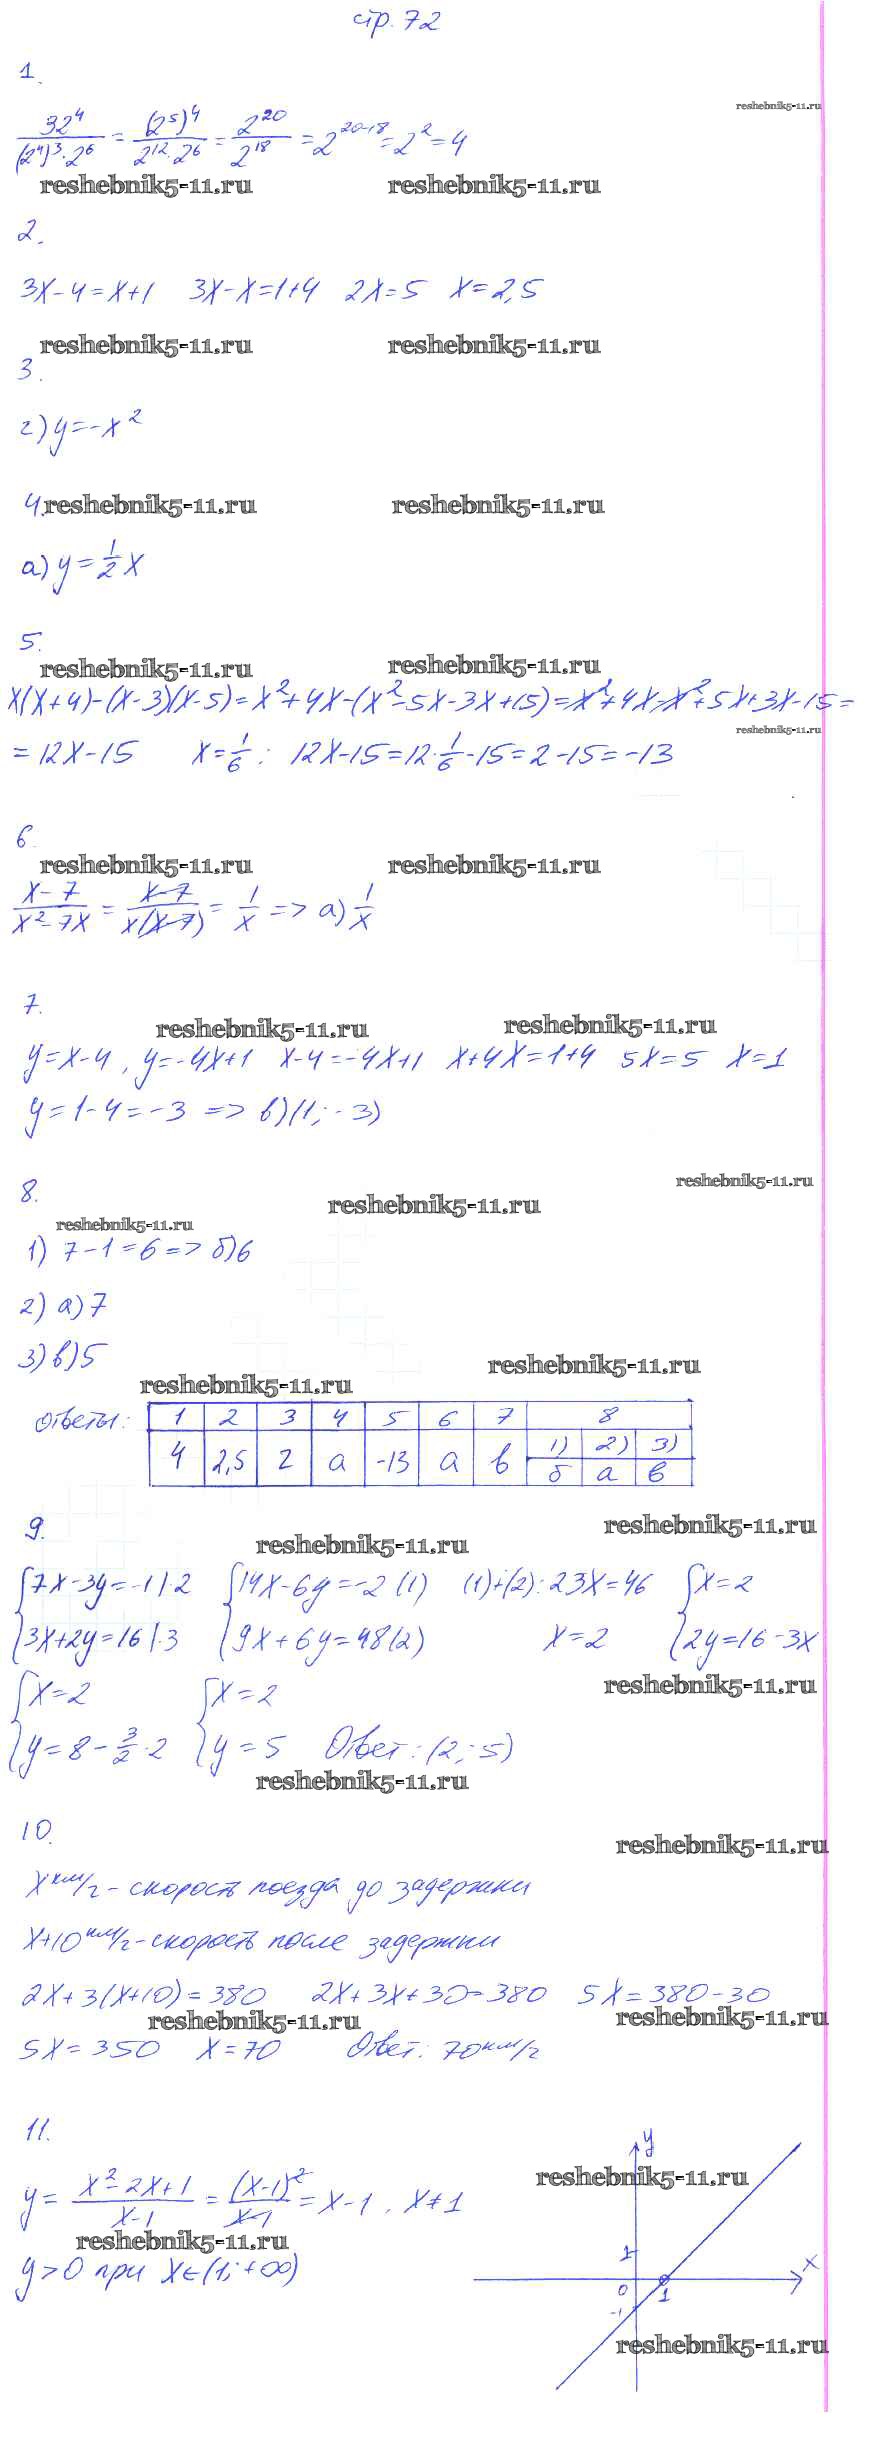 стр. 72
reshebnik5-11.ru
1.
32⁴/((2⁴)³·2⁶) = (2⁵)⁴/(2¹²·2⁶) = 2²⁰/2¹⁸ = 2²⁰⁻¹⁸ = 2² = 4
reshebnik5-11.ru reshebnik5-11.ru
2.
3x-4=x+1 3x-x=1+4 2x=5 x=2,5
reshebnik5-11.ru reshebnik5-11.ru
3.
г) y=-x²
4. reshebnik5-11.ru reshebnik5-11.ru
а) y=1/2 x
5.
reshebnik5-11.ru reshebnik5-11.ru
x(x+4)-(x-3)(x-5)=x²+4x-(x²-5x-3x+15)=x²+4x-x²+5x+3x-15=
reshebnik5-11.ru
=12x-15 x=1/6: 12x-15=12·1/6-15=2-15=-13
6.
reshebnik5-11.ru reshebnik5-11.ru
(x-7)/(x²-7x) = (x-7)/(x(x-7)) = 1/x => а) 1/x
7.
reshebnik5-11.ru reshebnik5-11.ru
y=x-4, y=-4x+1 x-4=-4x+1 x+4x=1+4 5x=5 x=1
y=1-4=-3 => в) (1; -3)
8.
reshebnik5-11.ru reshebnik5-11.ru
reshebnik5-11.ru
1) 7-1=6 => б) 6
2) а) 7
3) в) 5
reshebnik5-11.ru reshebnik5-11.ru
ответы: 1 2 3 4 5 6 7 8
4 2,5 г а -13 а в 1) 2) 3)
б а в
9.
reshebnik5-11.ru reshebnik5-11.ru
{7x-3y=-1 |·2 {14x-6y=-2 (1) (1)+(2): 23x=46 {x=2
{3x+2y=16 |·3 {9x+6y=48 (2) x=2 {2y=16-3x
reshebnik5-11.ru
{x=2 {x=2
{y=8-3/2·2 {y=5 Ответ: (2; 5)
reshebnik5-11.ru
10.
reshebnik5-11.ru
x км/г - скорость поезда до задержки
x+10 км/г - скорость после задержки
2x+3(x+10)=380 2x+3x+30=380 5x=380-30
reshebnik5-11.ru reshebnik5-11.ru
5x=350 x=70 Ответ: 70 км/г
11.
y
reshebnik5-11.ru
y = (x²-2x+1)/(x-1) = (x-1)²/(x-1) = x-1, x≠1
reshebnik5-11.ru
y>0 при x∈(1; +∞)
1
x
0 1
-1
reshebnik5-11.ru